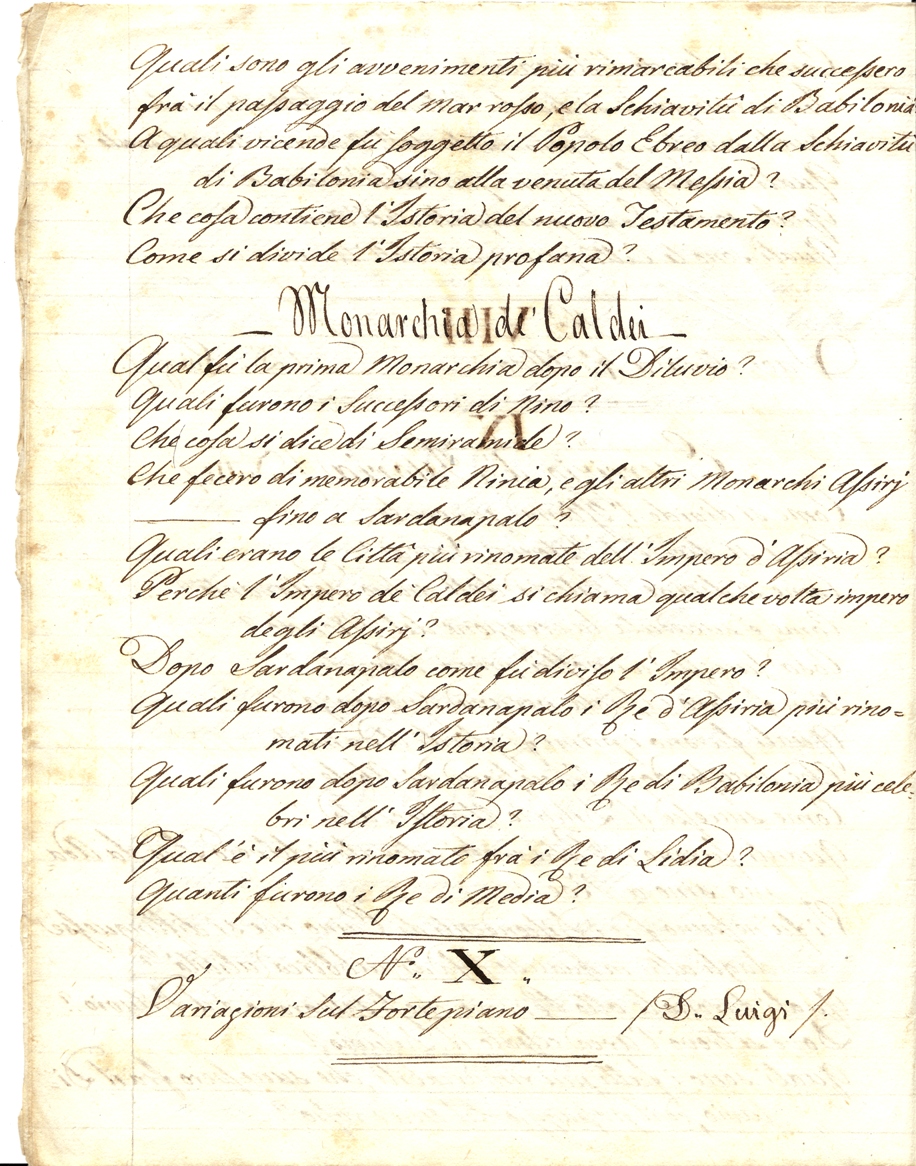 Quali sono gli avvenimenti più rimarcabili che successero
frà il passaggio del mar rosso, e la Schiavitù di Babilonia
A quali vicende fù soggetto il Popolo Ebreo dalla Schiavitù
di Babilonia sino alla venuta del Messia?
Che cosa contiene l'Istoria del nuovo Testamento?
Come si divide l'Istoria profana?
— Monarchia de' Caldei —
Qual fù la prima Monarchia dopo il Diluvio?
Quali furono i Successori di Nino?
Che cosa si dice di Semiramide?
Che fecero di memorabile Ninia, e gli altri Monarchi Assirj
fino a Sardanapalo?
Quali erano le Città più rinomate dell'Impero d'Assiria?
Perchè l'Impero de Caldei si chiama qualche volta impero
degli Assirj?
Dopo Sardanapalo come fù diviso l'Impero?
Quali furono dopo Sardanapalo i Re d'Assiria più rino=
mati nell'Istoria?
Quali furono dopo Sardanapalo i Re di Babilonia più cele=
bri nell'Istoria?
Qual'è il più rinomato frà i Re di Lidia?
Quanti furono i Re di Media?
N.° X.
Variazioni sul Fortepiano —— /D. Luigi/.